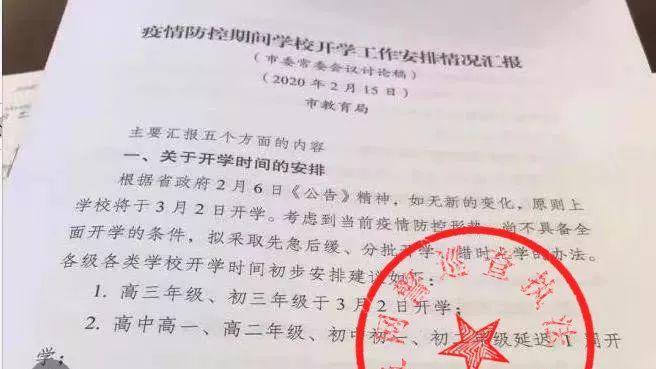 疫情防控期间学校开学工作安排情况汇报
（市委常委会议讨论稿）
（2020 年 2 月 15 日）
市教育局
主要汇报五个方面的内容
一、关于开学时间的安排
根据省政府 2 月 6 日《公告》精神，如无新的变化，原则上
学校将于 3 月 2 日开学。考虑到当前疫情防控形势，尚不具备全
面开学的条件，拟采取先急后缓、分批开学、错时上学的办法。
各级各类学校开学时间初步安排建议如下：
1. 高三年级、初三年级于 3 月 2 日开学；
2. 高中高一、高二年级、初中初一、初二年级延迟 1 周开
学；
网警巡查执法